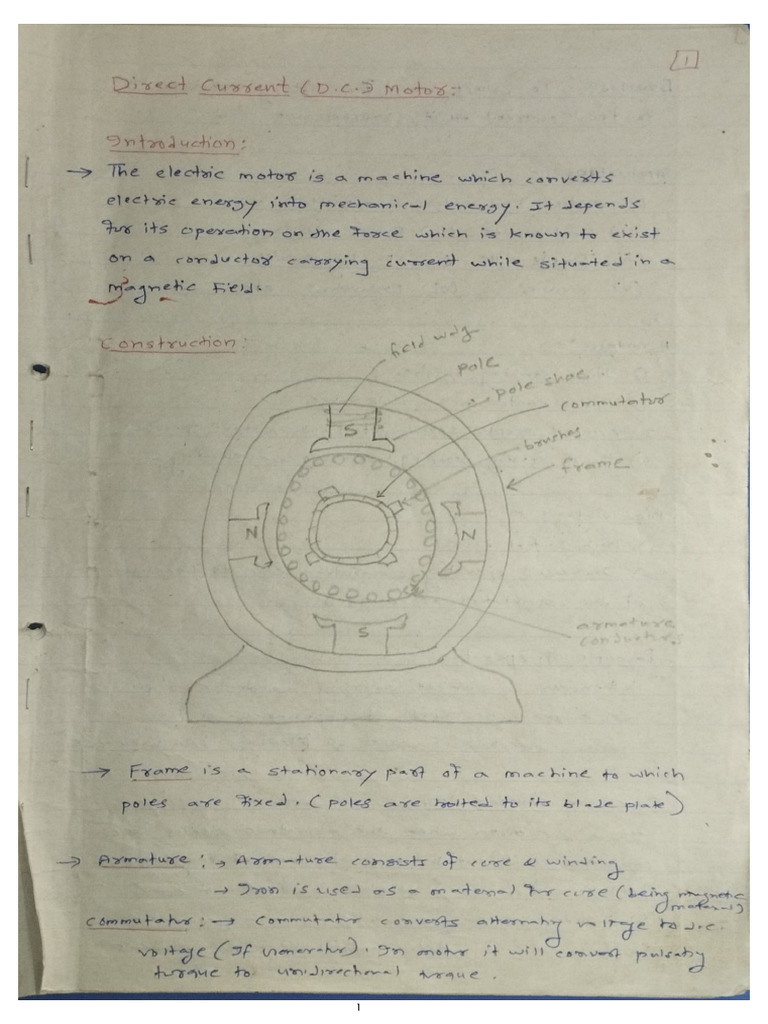 1
Direct Current (D.C.) Motor:-
Introduction:
→ The electric motor is a machine which converts
electric energy into mechanical energy. It depends
for its operation on the force which is known to exist
on a conductor carrying current while situated in a
magnetic field.
Construction:
field wdg
pole
pole shoe
commutator
brushes
frame
S
N
N
S
armature
conductors
→ Frame is a stationary part of a machine to which
poles are fixed. (poles are bolted to its blade plate)
→ Armature: → Armature consists of core & winding
→ Iron is used as a material for core (being magnetic
material)
Commutator: → Commutator converts alternating voltage to d.c.
voltage (If Generator). In motor it will convert pulsating
torque to unidirectional torque.
1